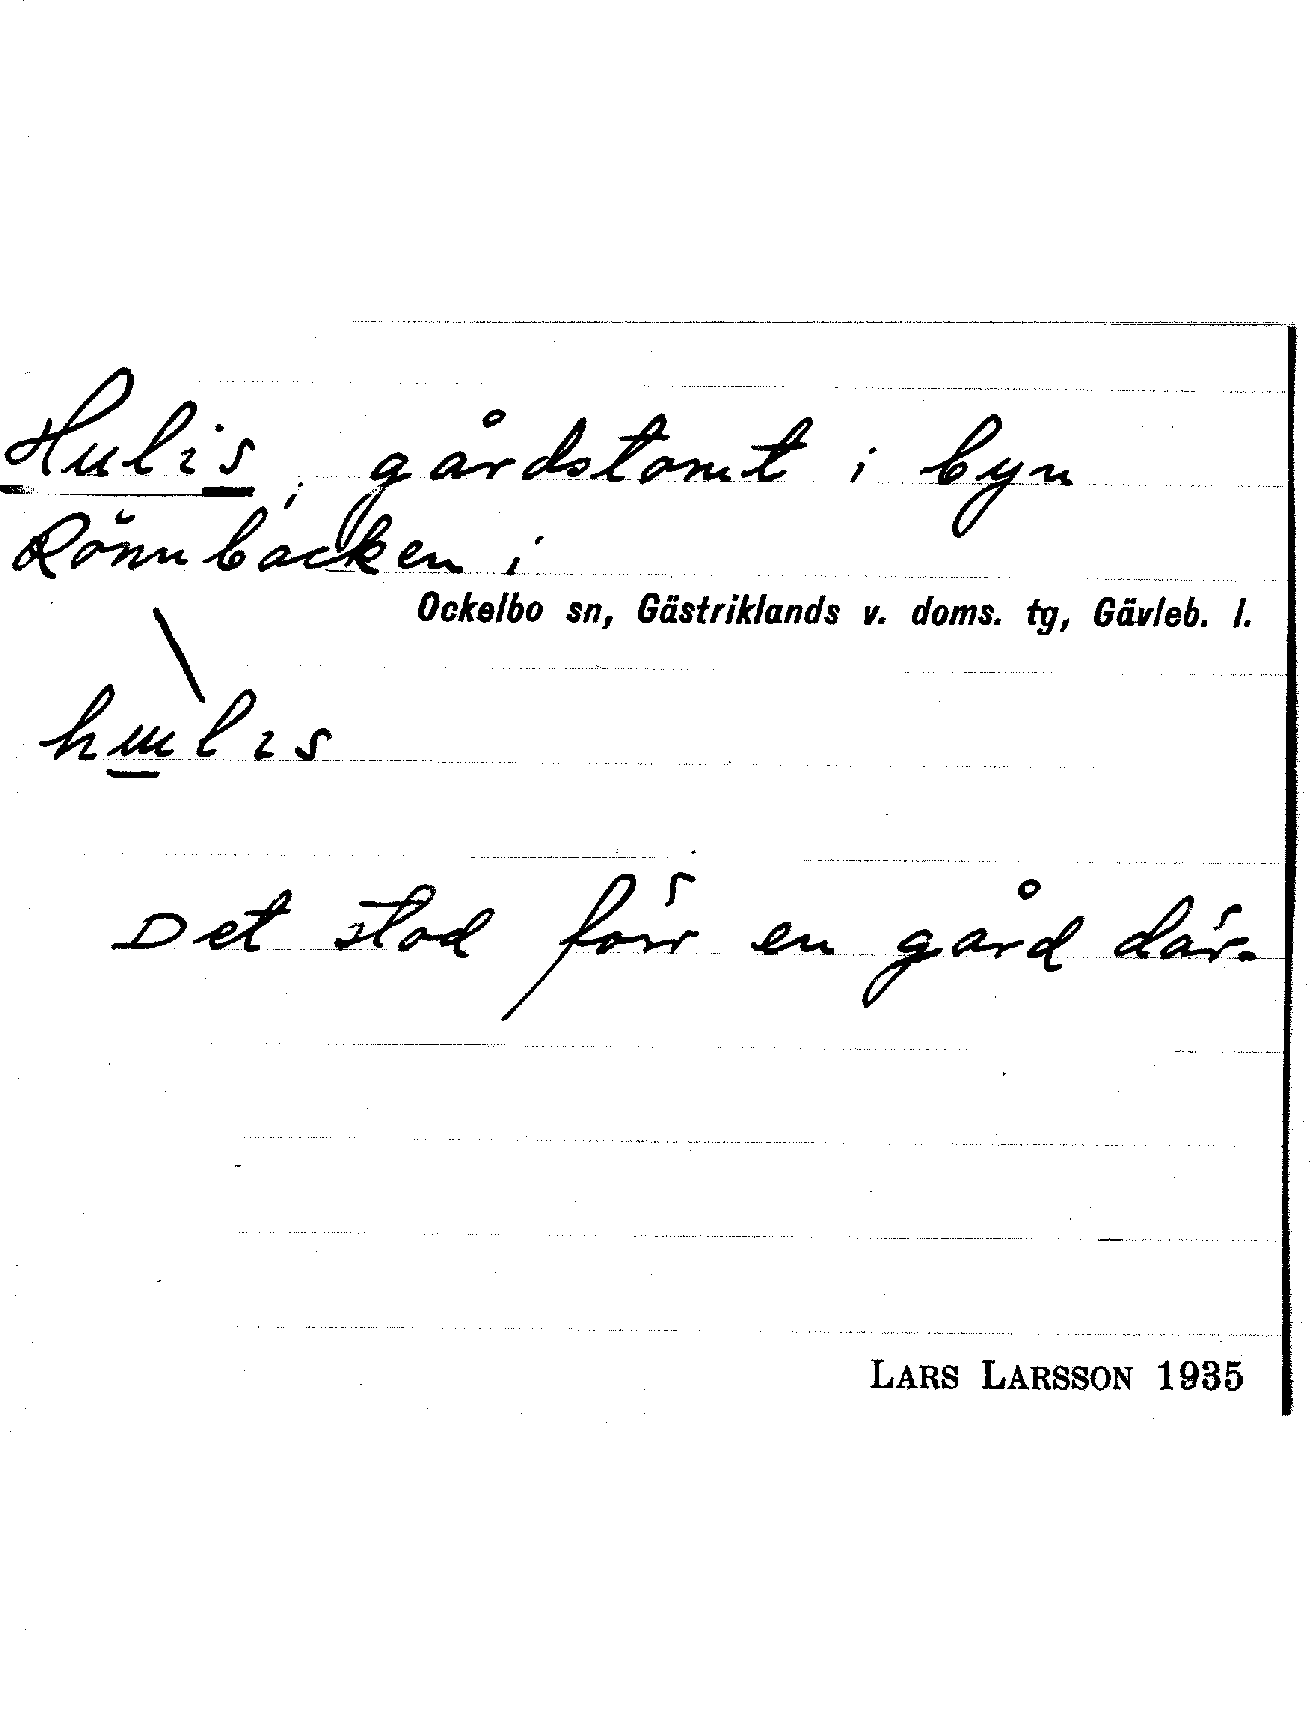 Hulis, gårdstomt i byn
Rönnbacken i
Ockelbo sn, Gästriklands v. doms. tg, Gävleb. l.
\
hɯlıs
Det stod förr en gård där.
LARS LARSSON 1935